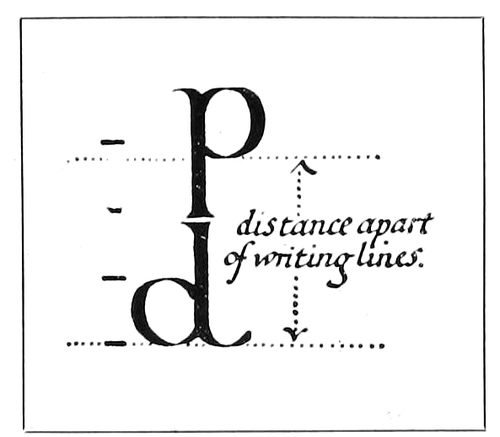 p
distance apart
of writing lines.
d